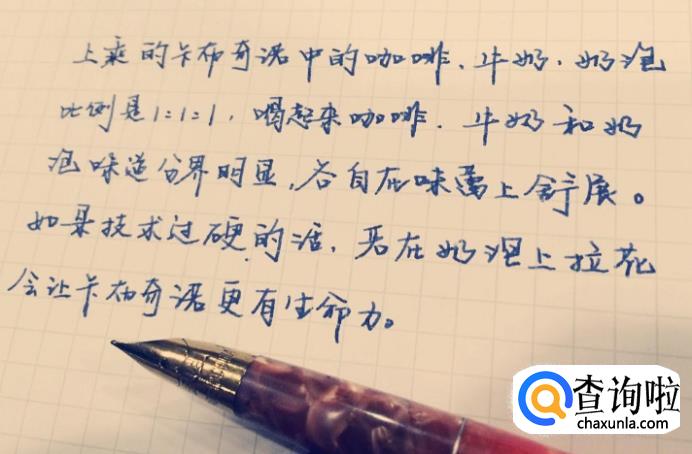 上乘的卡布奇诺中的咖啡、牛奶、奶泡
比例是1:1:1，喝起来咖啡、牛奶和奶
泡味道分界明显，各自在味蕾上舒展。
如果技术过硬的话，若在奶泡上拉花
会让卡布奇诺更有生命力。
查询啦
chaxunla.com